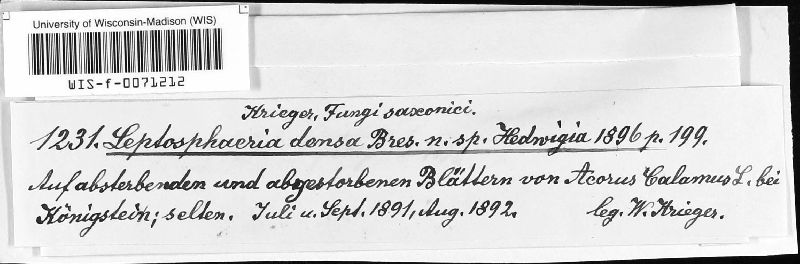 University of Wisconsin-Madison (WIS)
WIS-f-0071212
Krieger, Fungi saxonici.
1231. Leptosphaeria densa Bres. n. sp. Hedwigia 1896 p. 199.
Auf absterbenden und abgestorbenen Blättern von Acorus Calamus L. bei
Königstein; selten. Juli u. Sept. 1891, Aug. 1892. leg. W. Krieger.